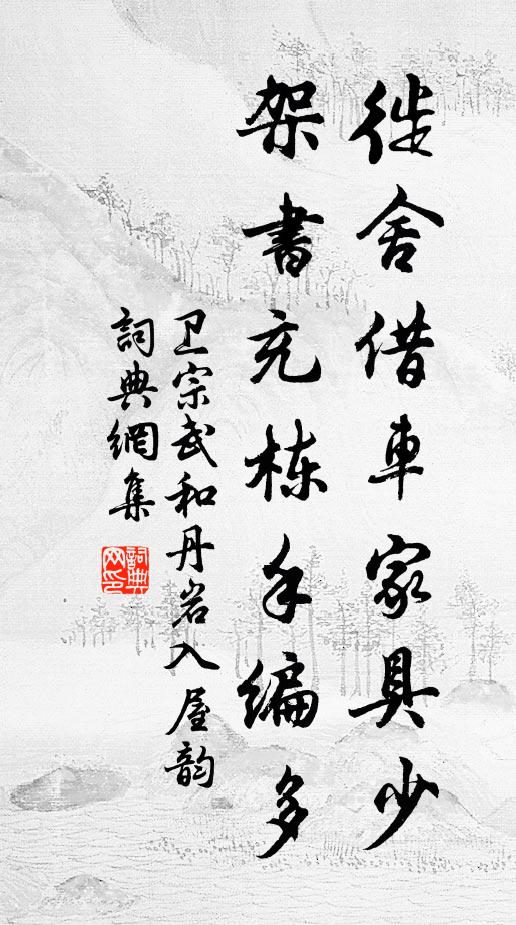 徙舍借車家具少
架書充栋手編多
卫宗武和丹岩入屋韵
詞典網集
詞典网印